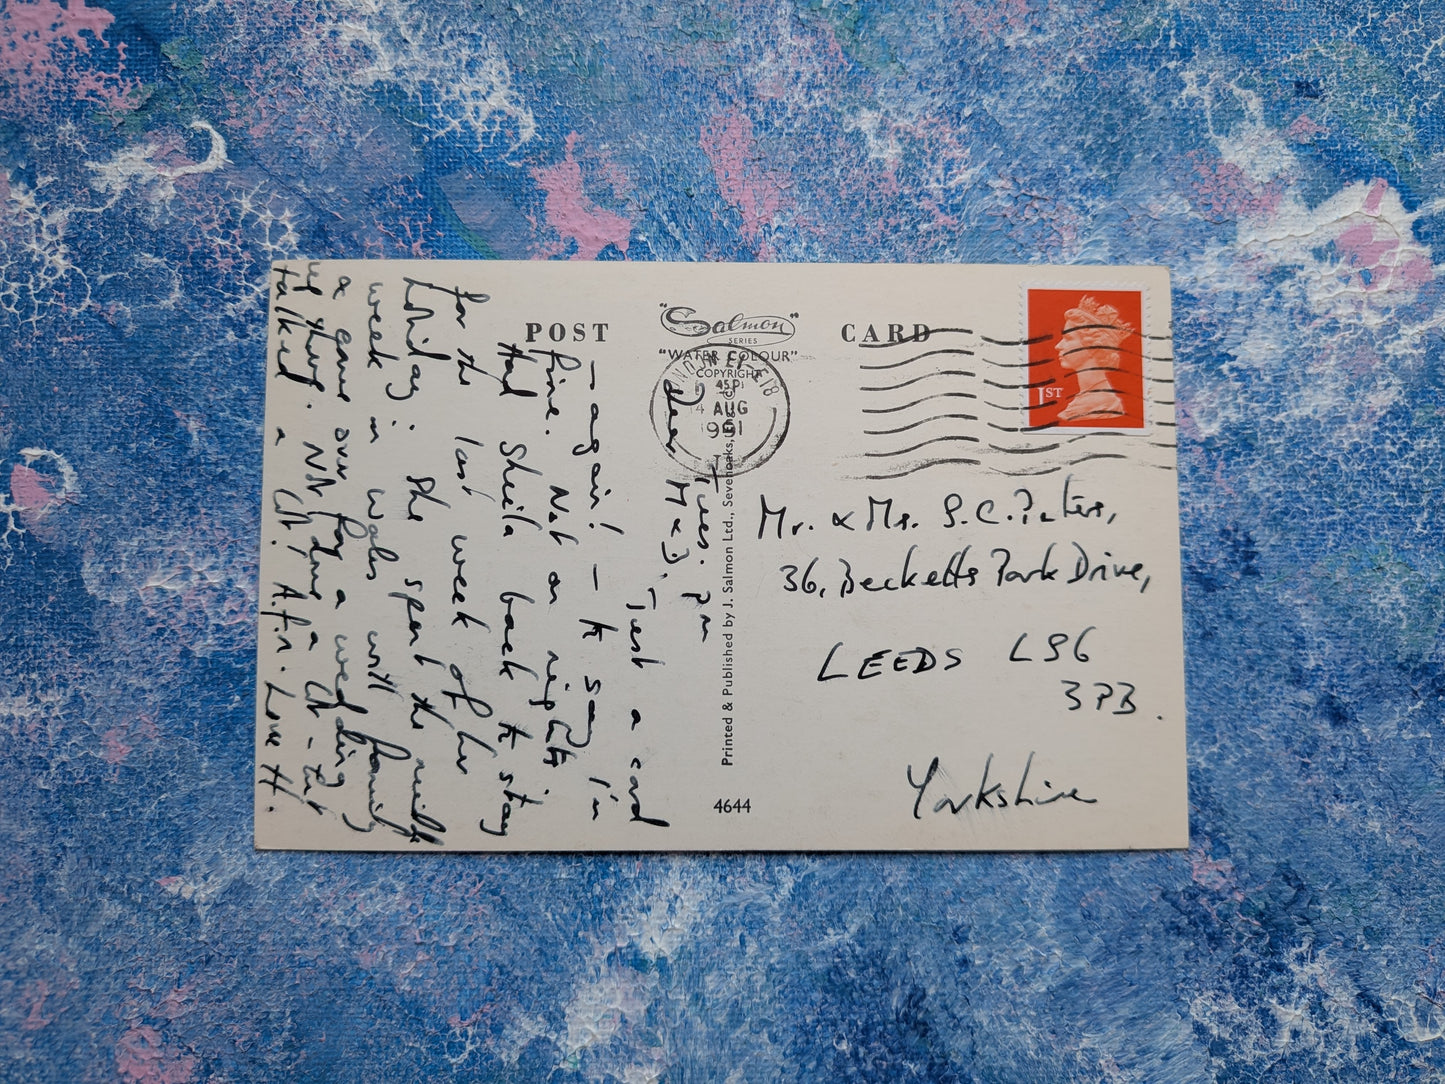 POST CARD
"Salmon"
SERIES
"WATER COLOUR"
COPYRIGHT
4 AUG
1991
1ST
Tues. pm
Dear M & J,
Just a card
– again! – to say I'm
fine. Not on nights
Had Sheila back to stay
for the last week of her
holiday: she spent the middle
week in Wales with family
& came down for a wedding
up there. Not done a lot – but
talked a lot! A.f.n. Love H.
Printed & Published by J. Salmon Ltd., Sevenoaks, Eng.
4644
Mr. & Mrs. S. C. Peters,
36, Becketts Park Drive,
LEEDS LS6
3PB.
Yorkshire